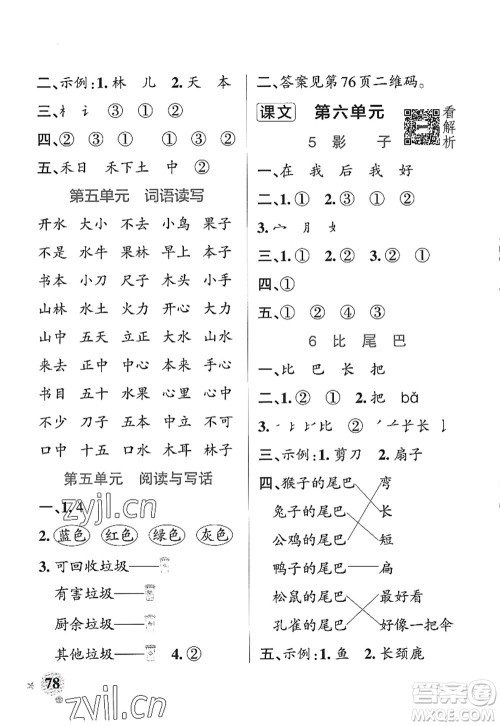 二、示例:1.林 儿 2.天 本
三、①礻 讠 ③ ①
四、② ③ ① ① ②
五、禾日 禾下土 中 ②
第五单元 词语读写
开水 大小 不去 小鸟 果子
不是 水牛 果林 早上 不少
书本 小刀 尺子 木头 小手
山林 水土 火力 开心 大力
山中 五天 立正 正中 水牛
来去 正好 中心 本子 去年
书目 五十 水果 大火 中年
不少 刀子 五年 立正 不可
口中 十五 火山 木耳 林子
第五单元 阅读与写话
一、1.4
2.蓝色 红色 绿色 灰色
3.可回收垃圾
有害垃圾
厨余垃圾
其他垃圾 4.②
78
二、答案见第76页二维码。
课文 第六单元
看解析
5 影 子
一、在 我 好 我
二、1.① 2.③ ② ①
3.宀 月 女
三、② ③ ① ④
四、①
五、① ①
6 比 尾 巴
一、比 巴 长 把
二、1.② 2.长 把 bǎ
三、示例:1.剪刀 2.扇子
四、猴子的尾巴 弯
兔子的尾巴 长
公鸡的尾巴 短
鸭子的尾巴 扁
松鼠的尾巴 最好看
孔雀的尾巴 好像一把伞
五、示例:1.鱼 2.长颈鹿
zyjl.cn
zyjl.cn